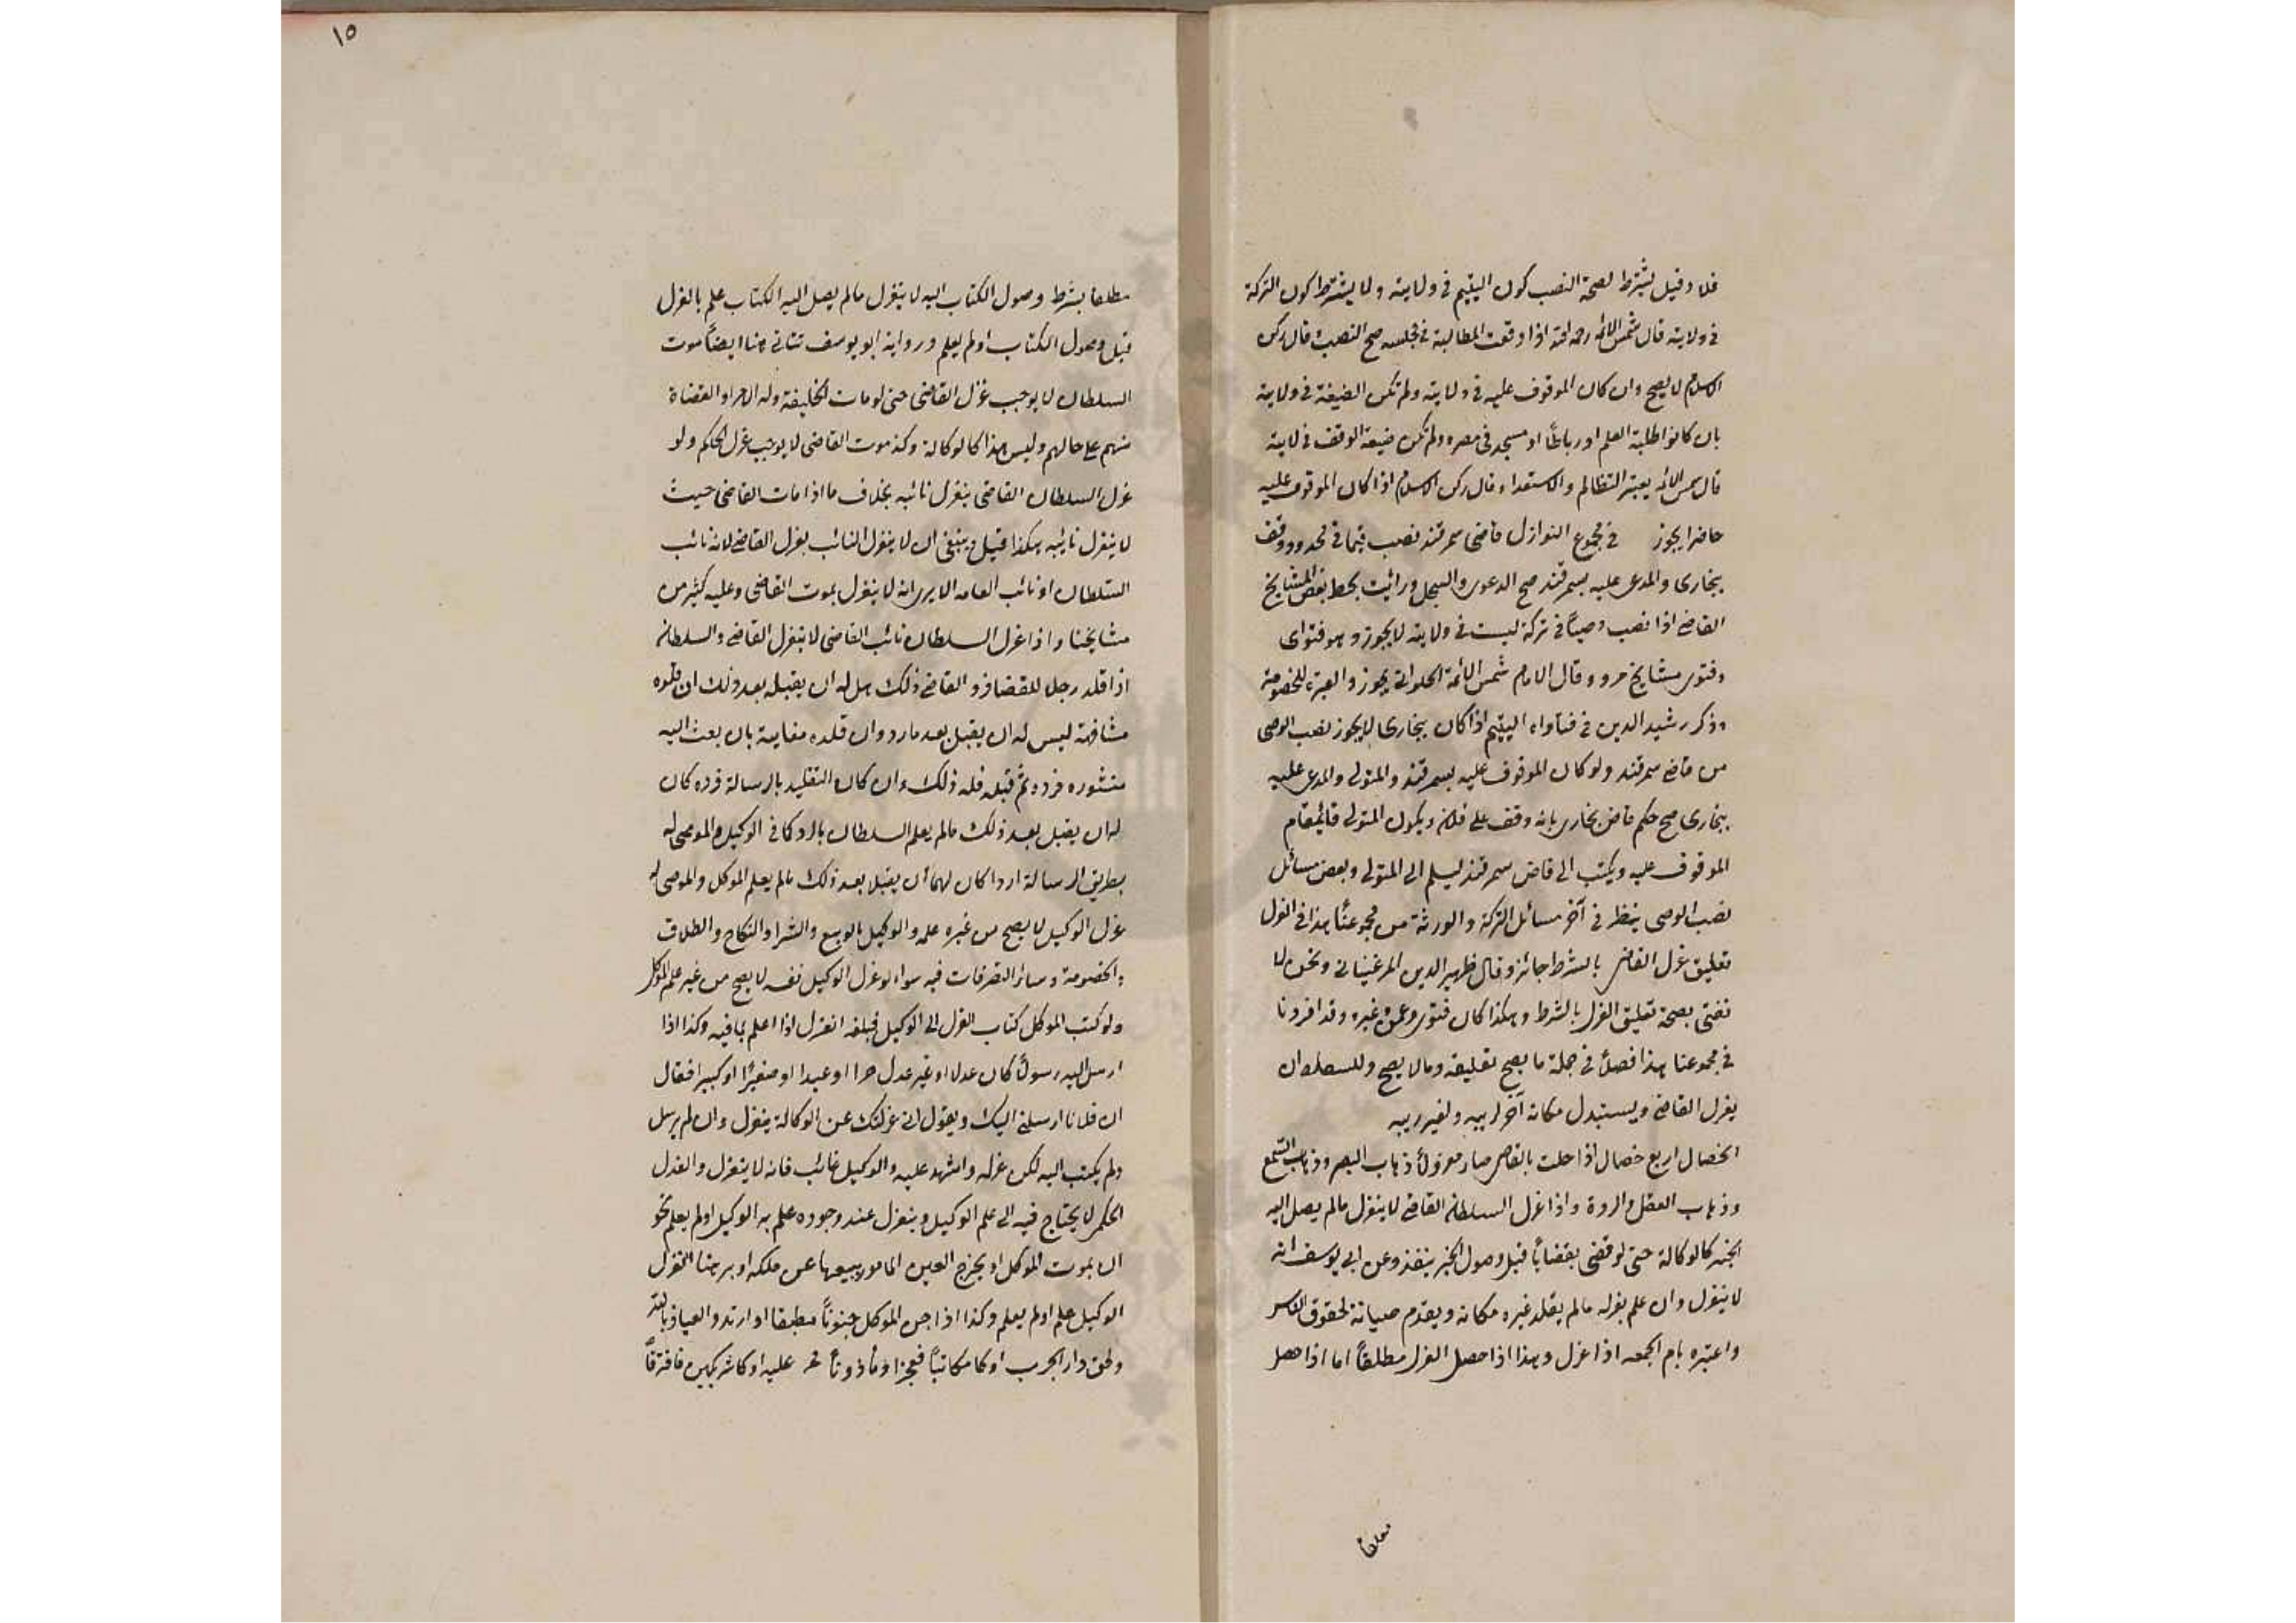 فلا وقيل يشترط لصحة النصب كون اليتيم في ولايته ولا يشترط كون التركة
في ولايته قال شمس الائمة رحمه الله اذا وقعت المطالبة في مجلسه صح النصب قال ركن
الاسلام لا يصح وان كان الموقوف عليه في ولايته ولم تكن الضيعة في ولايته
بان كانوا طلبة العلم او رباطًا او مسجد في مصره ولم تكن ضيعة الوقف في لايته
قال شمس الائمه يعتبر التظالم والاستعداء وقال ركن الاسلام اذا كان الموقوف عليه
حاضرا يجوز في مجموع النوازل قاضى سمرقند نصب قيما في محدود وقف
بخارى والمدعى عليه بسمرقند صح الدعوى والسجل ورائيت بخط بعض المشايخ
القاضى اذا نصب وصياً في تركة ليست في ولايته لا يجوز وهو فتواى
وفتوى مشايخ مرو وقال الامام شمس الائمة الحلوانى يجوز والعبرة للخصومة
وذكر رشيد الدين في فتاواه اليتيم اذا كان ببخارى لا يجوز نصب الوصى
من قاضى سمرقند ولو كان الموقوف عليه بسمرقند والمتولى والمدعى عليه
ببخارى صح حكم قاضى بخارى بانه وقف على فلان ويكون المتولى قائمقام
الموقوف عليه ويكتب الى قاضى سمرقند ليسلم الى المتولى وبعض مسائل
نصب الوصى ينظر في آخر مسائل التركة والورثة من مجموعنا هذا في العزل
تعليق عزل القاضى بالشرط جائز وقال ظهير الدين المرغينانى ونحن لا
نفتى بصحة تعليق العزل بالشرط وهكذا كان فتوى وغيره وقد افردنا
في مجموعنا هذا فصلاً في جملة ما يصح تعليقه وما لا يصح وللسلطان ان
يعزل القاضى ويستبدل مكانه آخر لريبه ولغير ريبه
الخصال اربع خصال اذا حلت بالقاضى صار معزولاً ذهاب البصر وذهاب السمع
وذهاب العقل والردة واذا عزل السلطان القاضى لا ينعزل مالم يصل اليه
الخبر كالوكالة حتى لو قضى بقضايا قبل وصول الخبر ينفذ وعن ابى يوسف انه
لا ينعزل وان علم بعزله مالم يقلد غيره مكانه ويقدم صيانة لحقوق الناس
واعتبره بام الجمعه اذا عزل وهذا اذا حصل العزل مطلقاً اما اذا حصل
معلقا
١٥
مطلقا بشرط وصول الكتاب اليه لا ينعزل مالم يصل اليه الكتاب علم بالعزل
قبل وصول الكتاب او لم يعلم ورواية ابو يوسف تتاتى هنا ايضاً موت
السلطان لا يوجب عزل القاضى حتى لو مات الخليفة وله امراء والقضاة
منهم على حالهم وليس هذا كالوكالة وكذ موت القاضى لا يوجب عزل الحاكم ولو
عزل السلطان القاضى ينعزل نائبه بخلاف ما اذا مات القاضى حيث
لا ينعزل نائبه هكذا قيل وينبغى ان لا ينعزل النائب بعزل القاضى لانه نائب
السلطان او نائب العامه الا يرى انه لا ينعزل بموت القاضى وعليه كثير من
مشايخنا واذا عزل السلطان نائب القاضى لا ينعزل القاضى والسلطان
اذا قلد رجلا للقضا فرد القاضى ذلك هل له ان يقبله بعد ذلك ان قلده
مشافهة ليس له ان يقبل بعد ما رد وان قلده مغايبة بان بعث اليه
منشوره فرده ثم قبله فله ذلك وان كان التقليد بالرسالة فرده كان
له ان يقبل بعد ذلك مالم يعلم السلطان بالرد كما في الوكيل والموصى له
بطريق الرسالة اردا كان لهما ان يقبلا بعد ذلك مالم يعلم الموكل والموصى له
عزل الوكيل لا يصح من غيره علمه والوكيل بالبيع والشراء والنكاح والطلاق
والخصومة وسائر التصرفات فيه سواء لو عزل الوكيل نفسه لا يصح من غير علم الموكل
ولو كتب الموكل كتاب العزل الى الوكيل فبلغه انعزل اذا اعلم بما فيه وكذا اذا
ارسل اليه رسولاً كان عدلا او غير عدل حرا او عبدا او صغيرًا او كبيرا فقال
ان فلانا ارسلنى اليك ويقول انى عزلتك عن الوكالة ينعزل وان لم يرسل
ولم يكتب اليه لكن عزله واشهد عليه والوكيل غائب فانه لا ينعزل والعزل
الحكمى لا يحتاج فيه الى علم الوكيل وينعزل عند وجوده علم به الوكيل او لم يعلم نحو
ان يموت الموكل او يخرج العين المامور ببيعها عن ملكه او برهنا انعزل
الوكيل علم او لم يعلم وكذا اذا جن الموكل جنوناً مطبقا او ارتد والعياذ بالله
ولحق دار الحرب او كا مكاتباً فعجز او ماذوناً عليه او كا شريكين فافترقاً